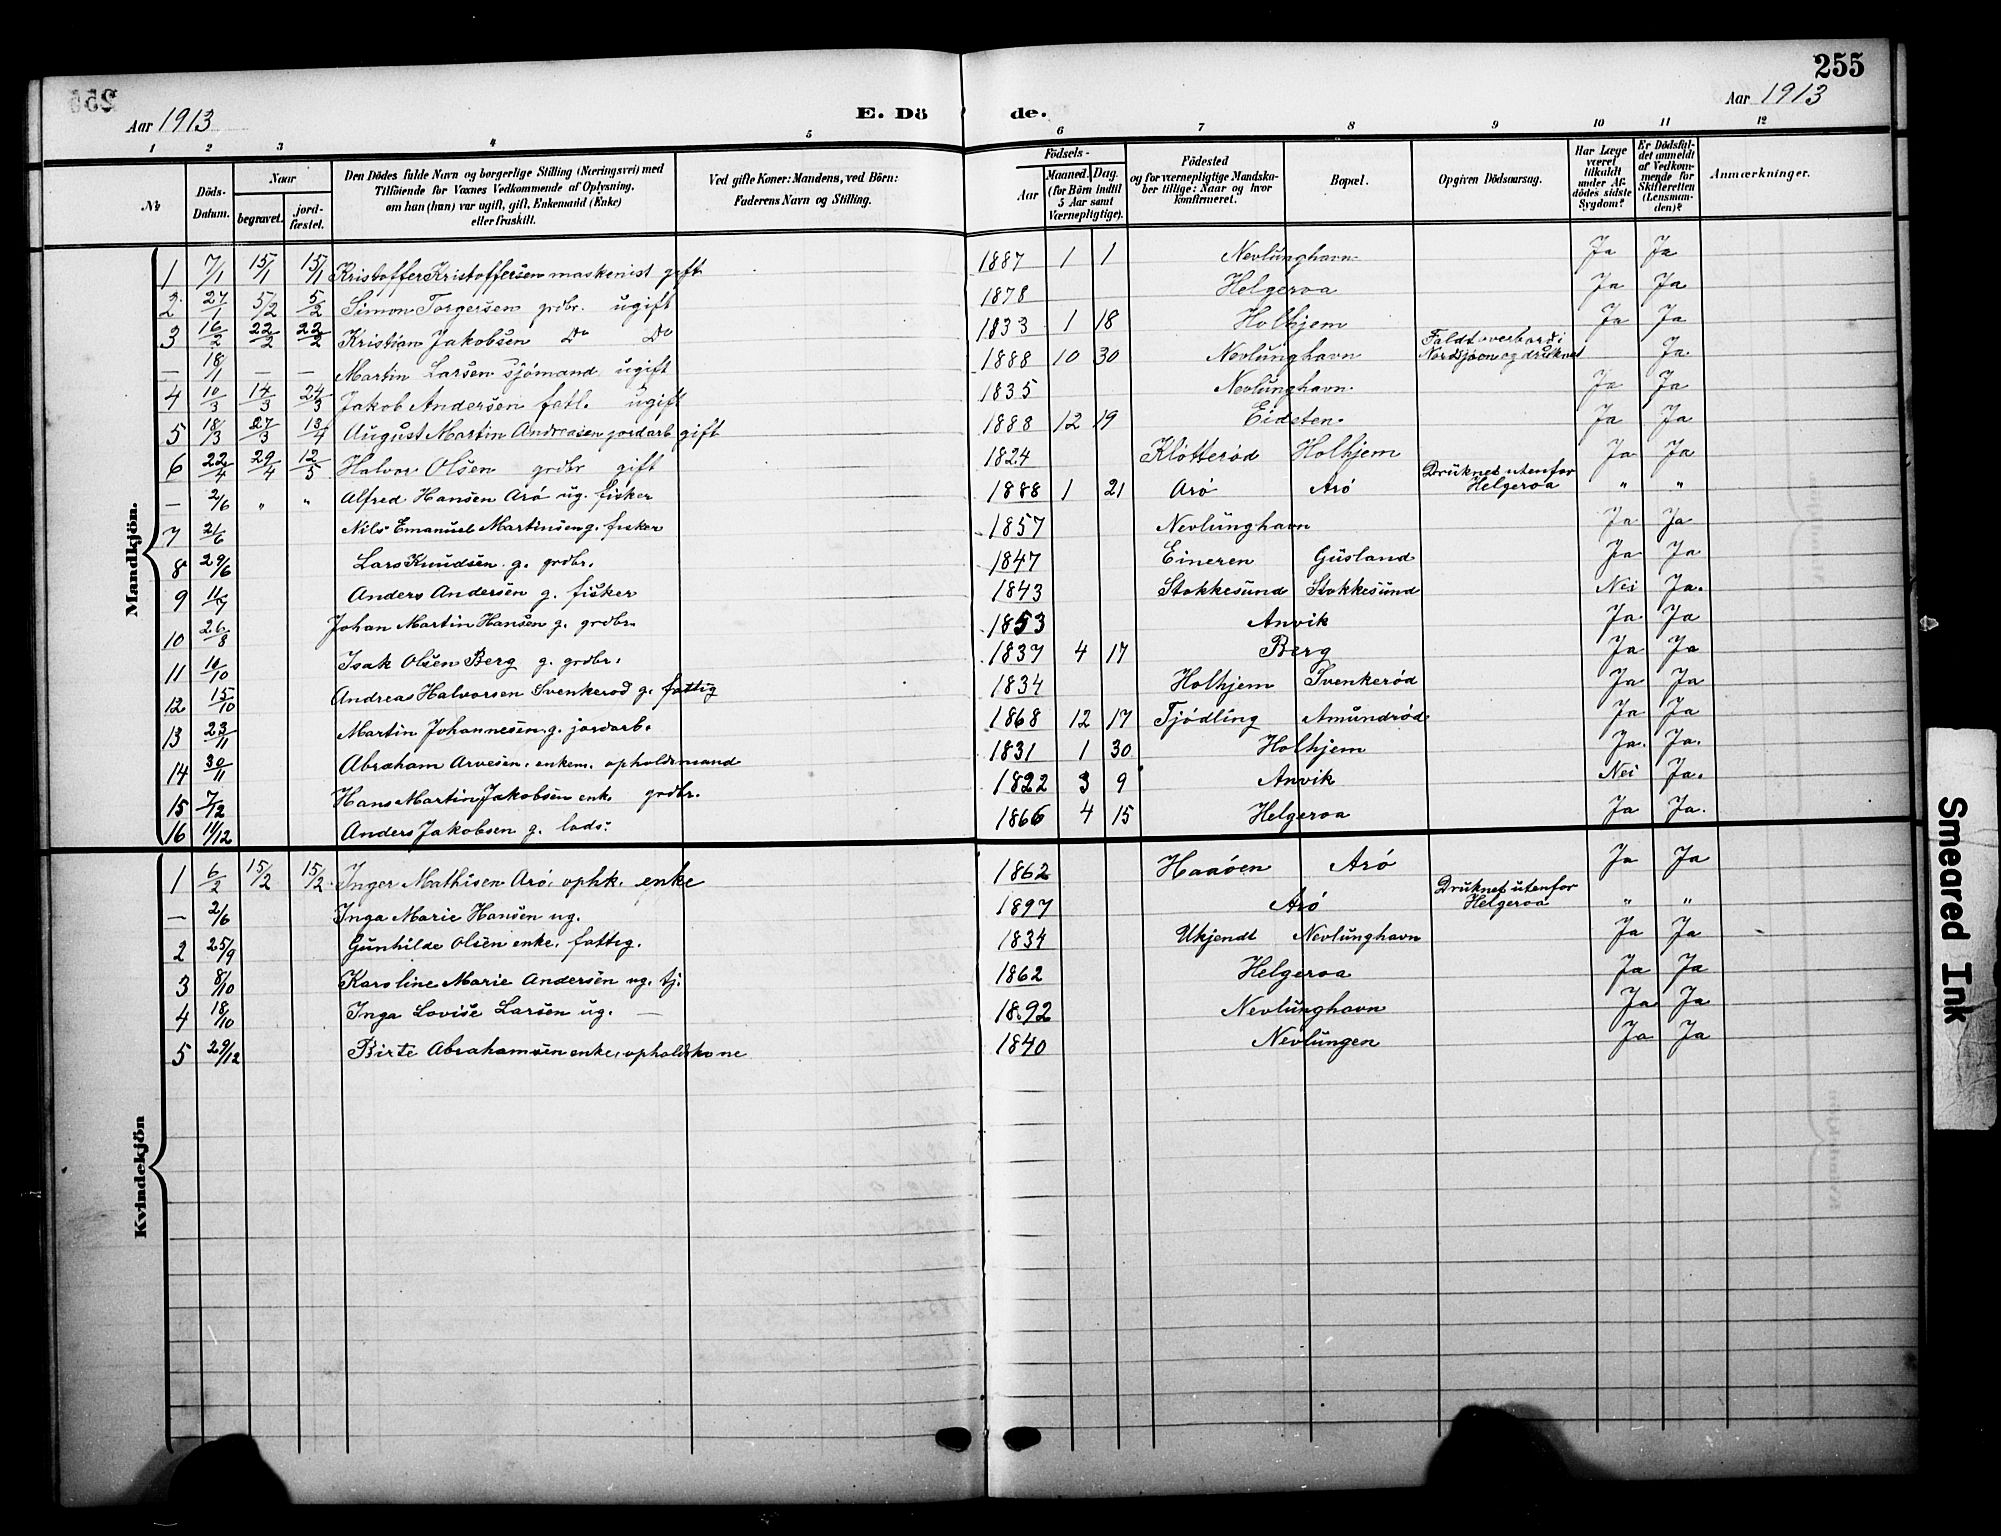 255
Aar 1913
E. Dö de.
Aar 1913
1 2 3 4 5 6 7 8 9 10 11 12
No
Döds-Datum.
Naar
begravet.
jord-fæstet.
Den Dödes fulde Navn og borgerlige Stilling (Næringsvei) med
Tilföiende for Voxnes Vedkommende af Oplysning,
om han (hun) var ugift, gift, Enkemand (Enke)
eller fraskilt.
Ved gifte Koner: Mandens, ved Börn:
Faderens Navn og Stilling.
Födsels-
Aar
Maaned. Dag.
(for Börn indtil
5 Aar samt
Værnepligtige).
Födested
og for værnepligtige Mandska-
ber tillige: Naar og hvor
konfirmeret.
Bopæl.
Opgiven Dödsaarsag.
Har Læge
været
tilkaldt
under Af-
dödes sidste
Sygdom?
Er Dödsfal-
det anmeldt
af Vedkom-
mende for
Skifteretten
(Lensman-
den)?
Anmærkninger.
Mandkjön.
1 7/1 15/1 15/1 Kristoffer Kristoffersen maskenist gift 1887 1 1 Nevlunghavn Ja Ja
2 27/1 5/2 5/2 Simon Torgersen grdbr. ugift 1878 Helgeroa Ja Ja
3 16/2 22/2 22/2 Kristian Jakobsen Do Do 1833 1 18 Holhjem Ja Ja
— 18/1 — — Martin Larsen sjömand ugift 1888 10 30 Nevlunghavn Faldt overbord i Nordsjøen og druknet Ja
4 10/3 14/3 24/3 Jakob Andersen fatl. ugift 1835 Nevlunghavn. Ja Ja
5 18/3 27/3 13/4 August Martin Andreasen jordarb gift 1888 12 19 Eidsten. Ja Ja
6 22/4 29/4 12/5 Halvor Olsen grdbr gift 1824 Kløtterød Holhjem Ja Ja
— 2/6 " " Alfred Hansen Arö ug. fisker 1888 1 21 Arö Arö Druknet utenfor Helgeroa " "
7 21/6 Nils Emanuel Martinsen g. fisker 1857 Nevlunghavn Ja Ja
8 29/6 Lars Knudsen g. grdbr. 1847 Eineren Gusland Ja Ja
9 11/7 Anders Andersen g. fisker 1843 Stokkesund Stokkesund Nei Ja.
10 26/8 Johan Martin Hansen g. grdbr. 1853 Anvik Ja Ja
11 10/10 Isak Olsen Berg g. grdbr. 1837 4 17 Berg Ja Ja
12 15/10 Andreas Halvorsen Svenkerød g. fattig 1834 Holhjem Svenkerød Ja Ja
13 23/11 Martin Johannesen. g. jordarb. 1868 12 17 Tjødling Amundrød. Ja Ja
14 30/11 Abraham Arvesen. enkem. opholdsmand 1831 1 30 Holhjem Ja. Ja.
15 7/12 Hans Martin Jakobsen enk. grdbr. 1822 3 9 Anvik Nei Ja.
16 11/12 Anders Jakobsen g. lods. 1866 4 15 Helgeroa Ja Ja.
Kvindekjön
1 6/2 15/2 15/2. Inger Mathisen Arö, ophk. enke 1862 Haaöen Arö Ja Ja
— 2/6 Inga Marie Hansen ug. 1897 Arö Druknet utenfor Helgeroa " "
2 25/9 Gunhilde Olsen enke. fattig. 1834 Ukjendt Nevlunghavn Ja Ja
3 8/10 Karoline Marie Andersen ug. tj. 1862 Helgeroa Ja Ja
4 18/10 Inga Lovise Larsen ug. — 1892 Nevlunghavn Ja Ja
5 29/12 Birte Abrahamsen enke, opholdskone 1840 Nevlungen Ja Ja
Smeared Ink